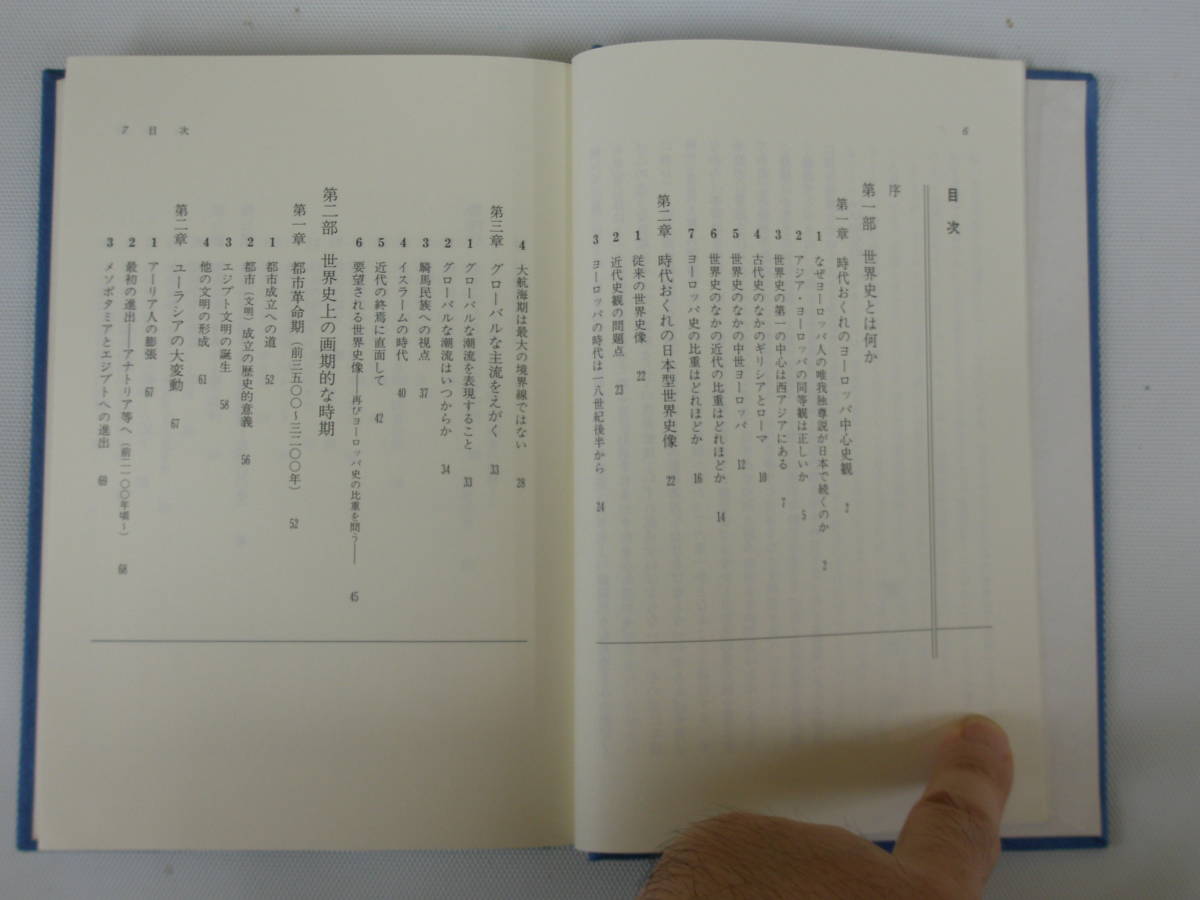 6
目次
序
第一部 世界史とは何か
第一章 時代おくれのヨーロッパ中心史観 2
1 なぜヨーロッパ人の唯我独尊説が日本で続くのか 2
2 アジア・ヨーロッパの同等観は正しいか 5
3 世界史の第一の中心は西アジアにある 7
4 古代史のなかのギリシアとローマ 10
5 世界史のなかの中世ヨーロッパ 12
6 世界史のなかの近代の比重はどれほどか 14
7 ヨーロッパ史の比重はどれほどか 16
第二章 時代おくれの日本型世界史像 22
1 従来の世界史像 22
2 近代史観の問題点 23
3 ヨーロッパの時代は一八世紀後半から 24
7 目次
4 大航海期は最大の境界線ではない 28
第三章 グローバルな主流をえがく 33
1 グローバルな潮流を表現すること 33
2 グローバルな潮流はいつからか 34
3 騎馬民族への視点 37
4 イスラームの時代 40
5 近代の終焉に直面して 42
6 要望される世界史像——再びヨーロッパ史の比重を問う—— 45
第二部 世界史上の画期的な時期
第一章 都市革命期(前三五〇〇〜三二〇〇年) 52
1 都市成立への道 52
2 都市(文明)成立の歴史的意義 56
3 エジプト文明の誕生 58
4 他の文明の形成 61
第二章 ユーラシアの大変動 67
1 アーリア人の膨張 67
2 最初の進出——アナトリア等へ(前二一〇〇年頃〜) 68
3 メソポタミアとエジプトへの進出 69